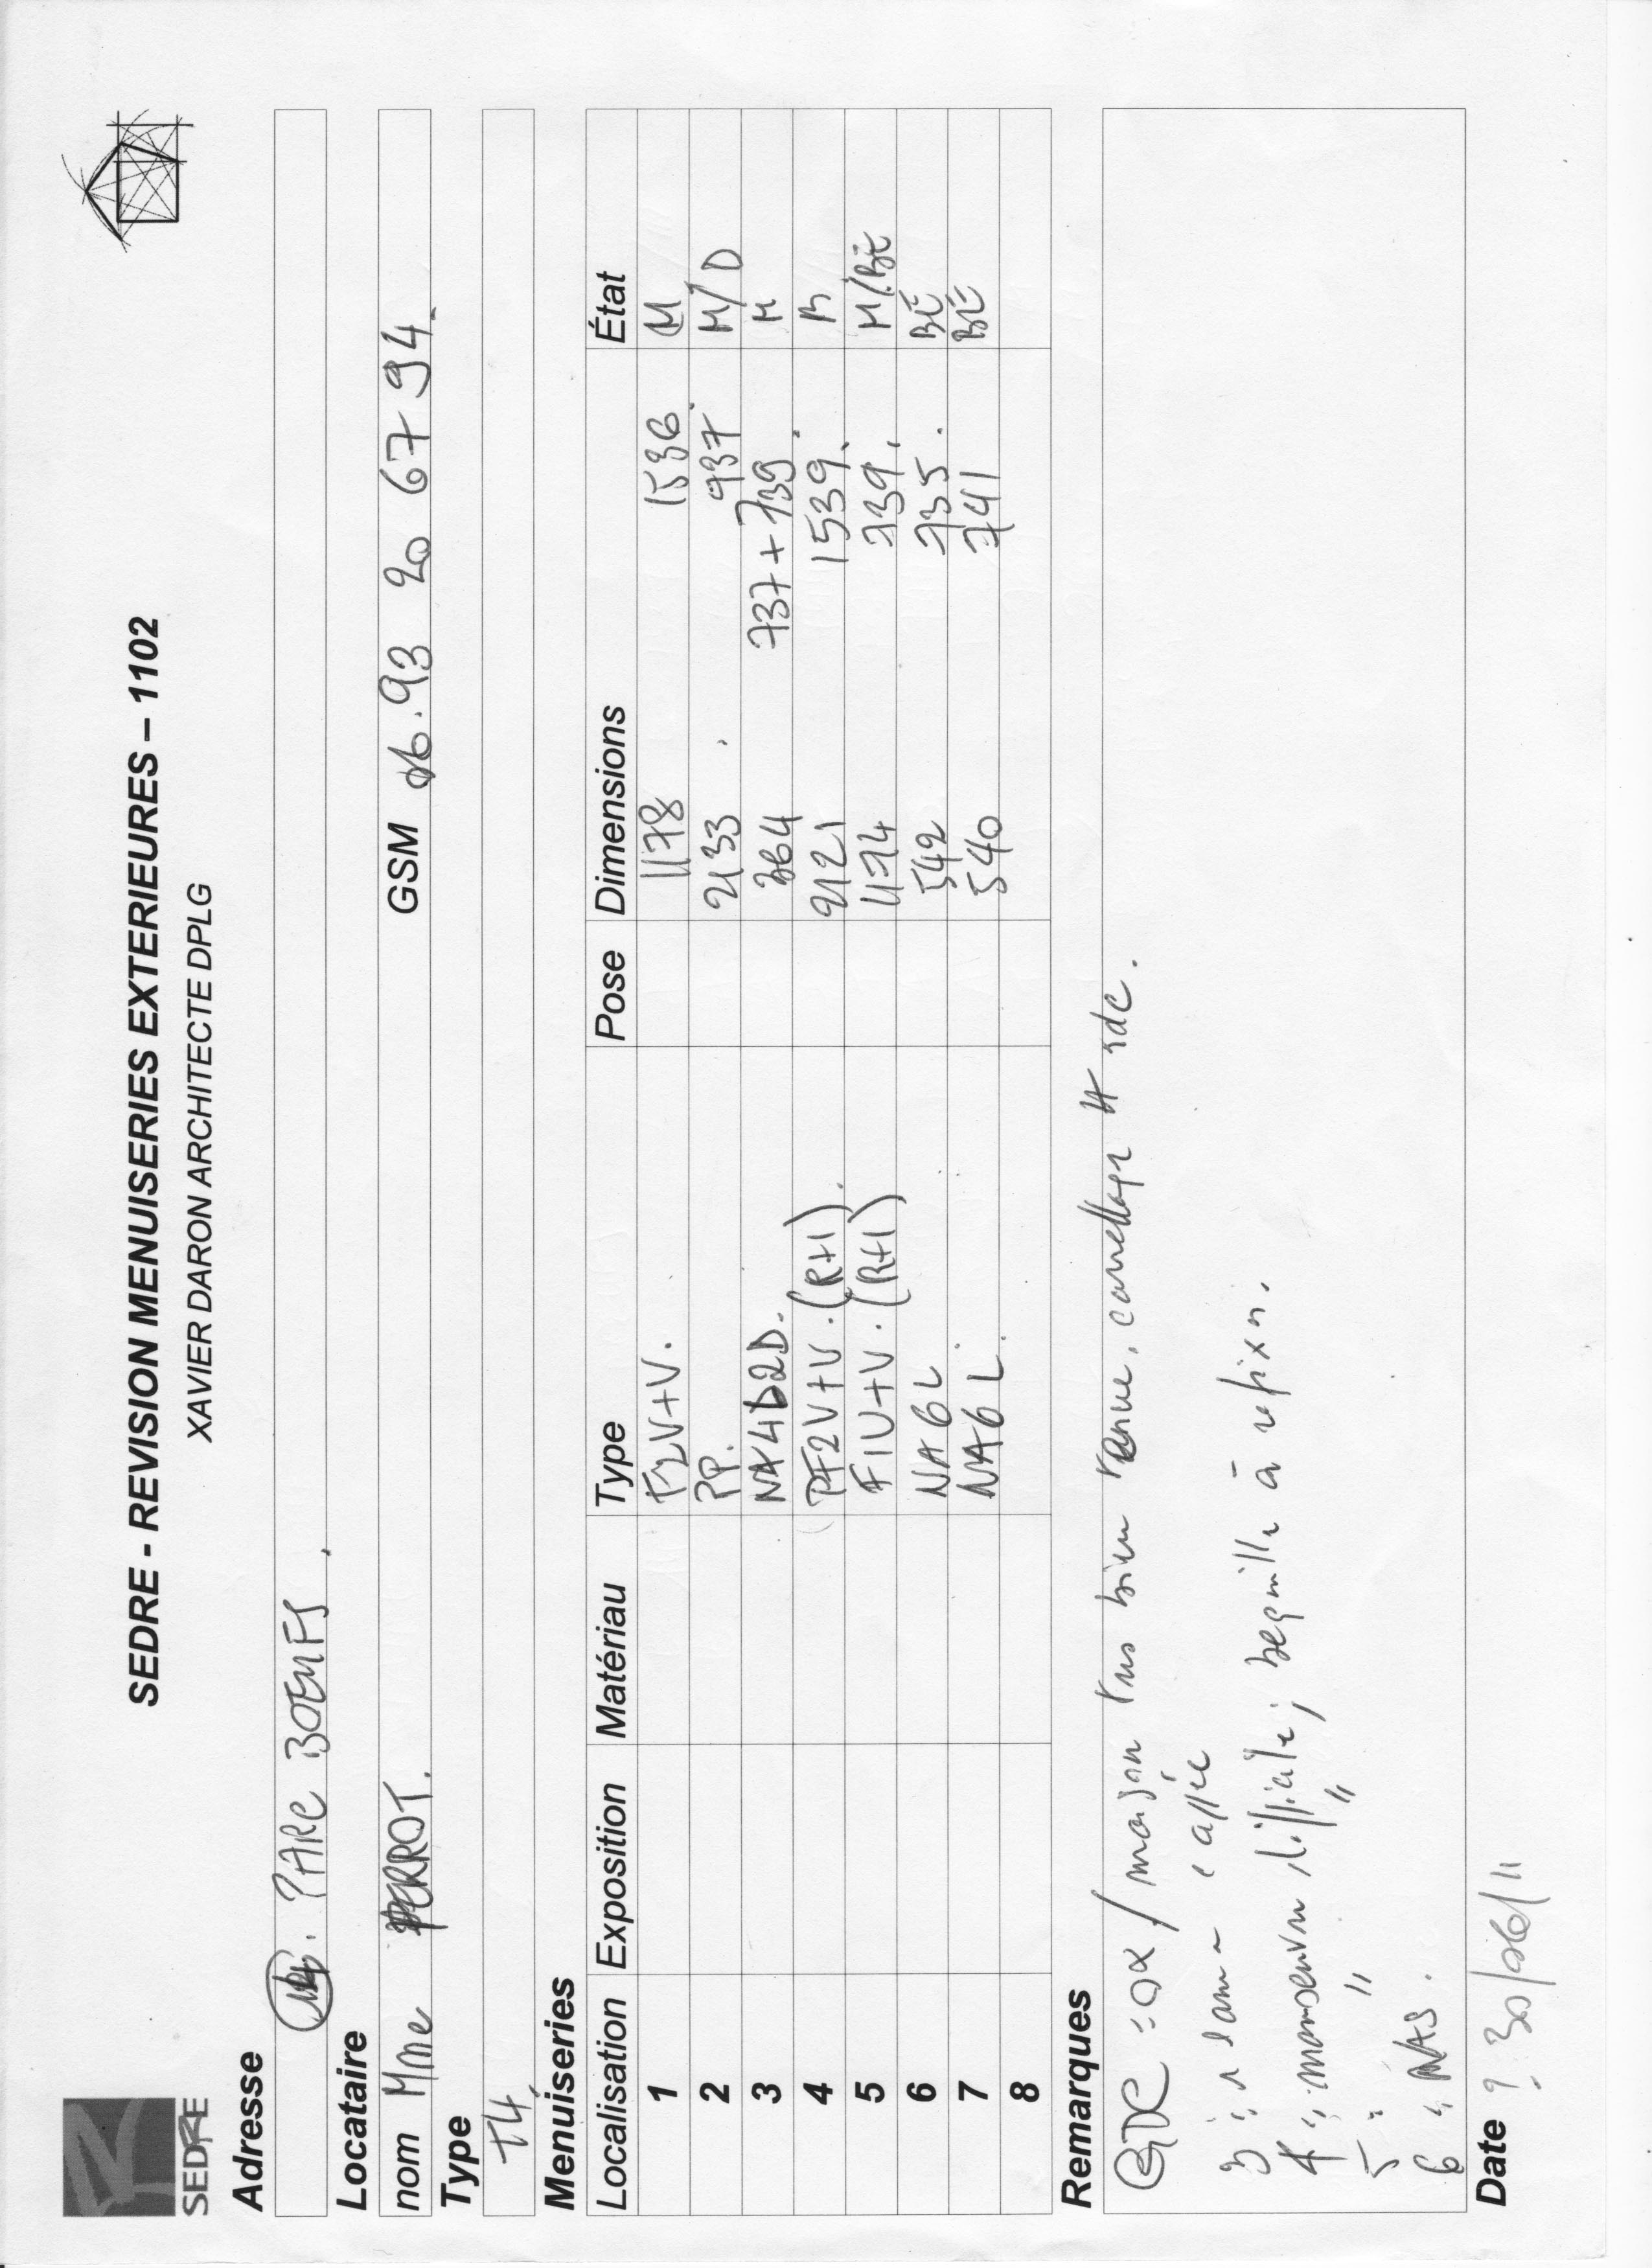 SEDRE
SEDRE - REVISION MENUISERIES EXTERIEURES – 1102
XAVIER DARON ARCHITECTE DPLG
Adresse
PARC BOEUFS
Locataire
nom Mme PERROT. GSM 06.93 20 67 94
Type
T4
Menuiseries
Localisation Exposition Matériau Type Pose Dimensions État
1 F2V+V. 1178 1536 M
2 PP. 2133 937 M/D
3 NA4L2D. 364 737+739 M
4 PF2V+V. (R+1) 2121 1539 M
5 F1V+V. (R+1) 1174 739 M/BE
6 NA6L 542 735 BE
7 NA6L 540 741 BE
8
Remarques
maison très bien tenue, carrelage rdc.
3 : 1 lame cassée
4 : manoeuvre difficile ; béquille à refixer.
5 : " "
6 : NAS.
Date : 30/06/11